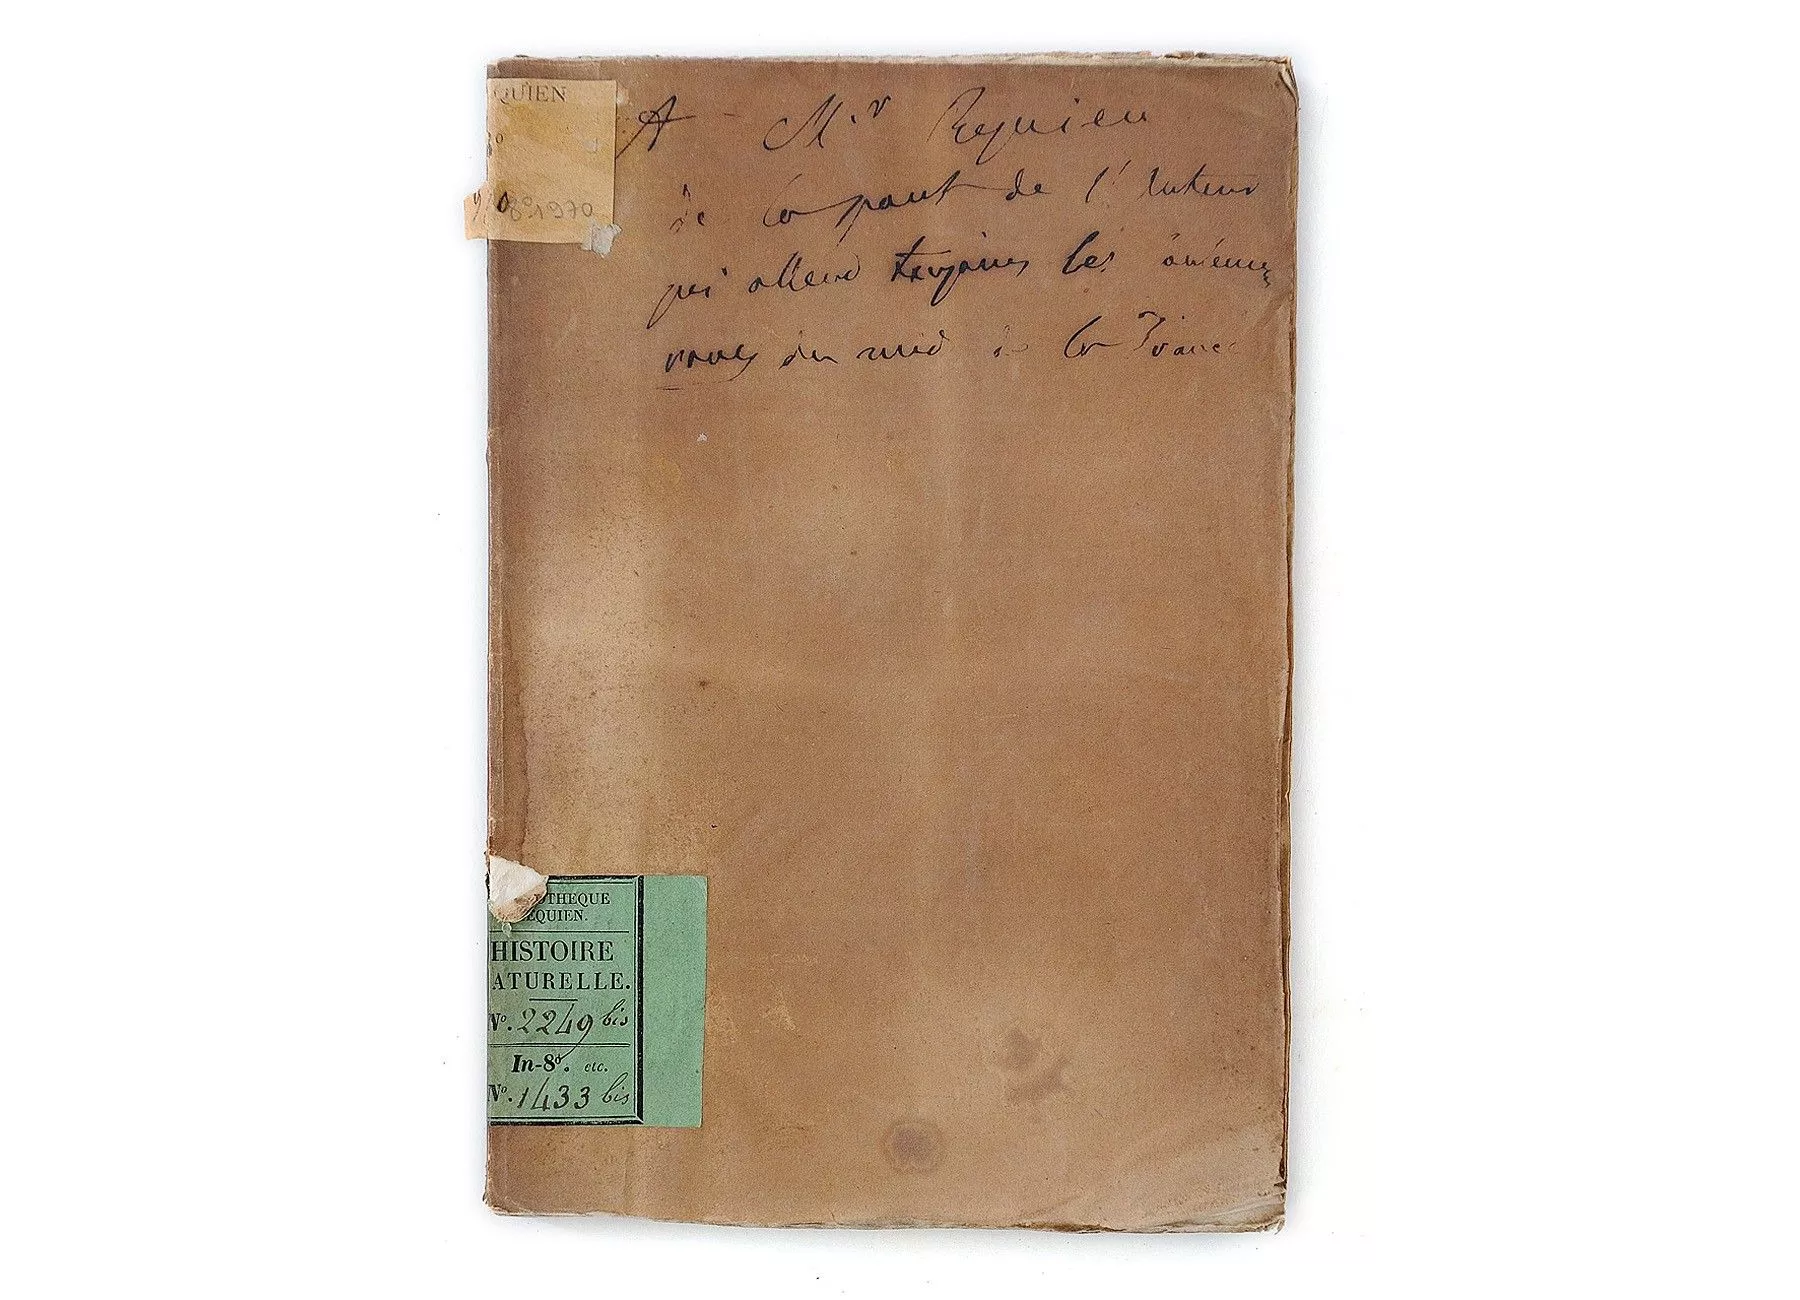 QUIEN
8º1970
A Mr Requien
de la part de l'Auteur
qui attend toujours les
du midi de la France
OTHEQUE
EQUIEN.
HISTOIRE
ATURELLE.
Nº. 2249 bis
In-8º. etc.
Nº. 1433 bis